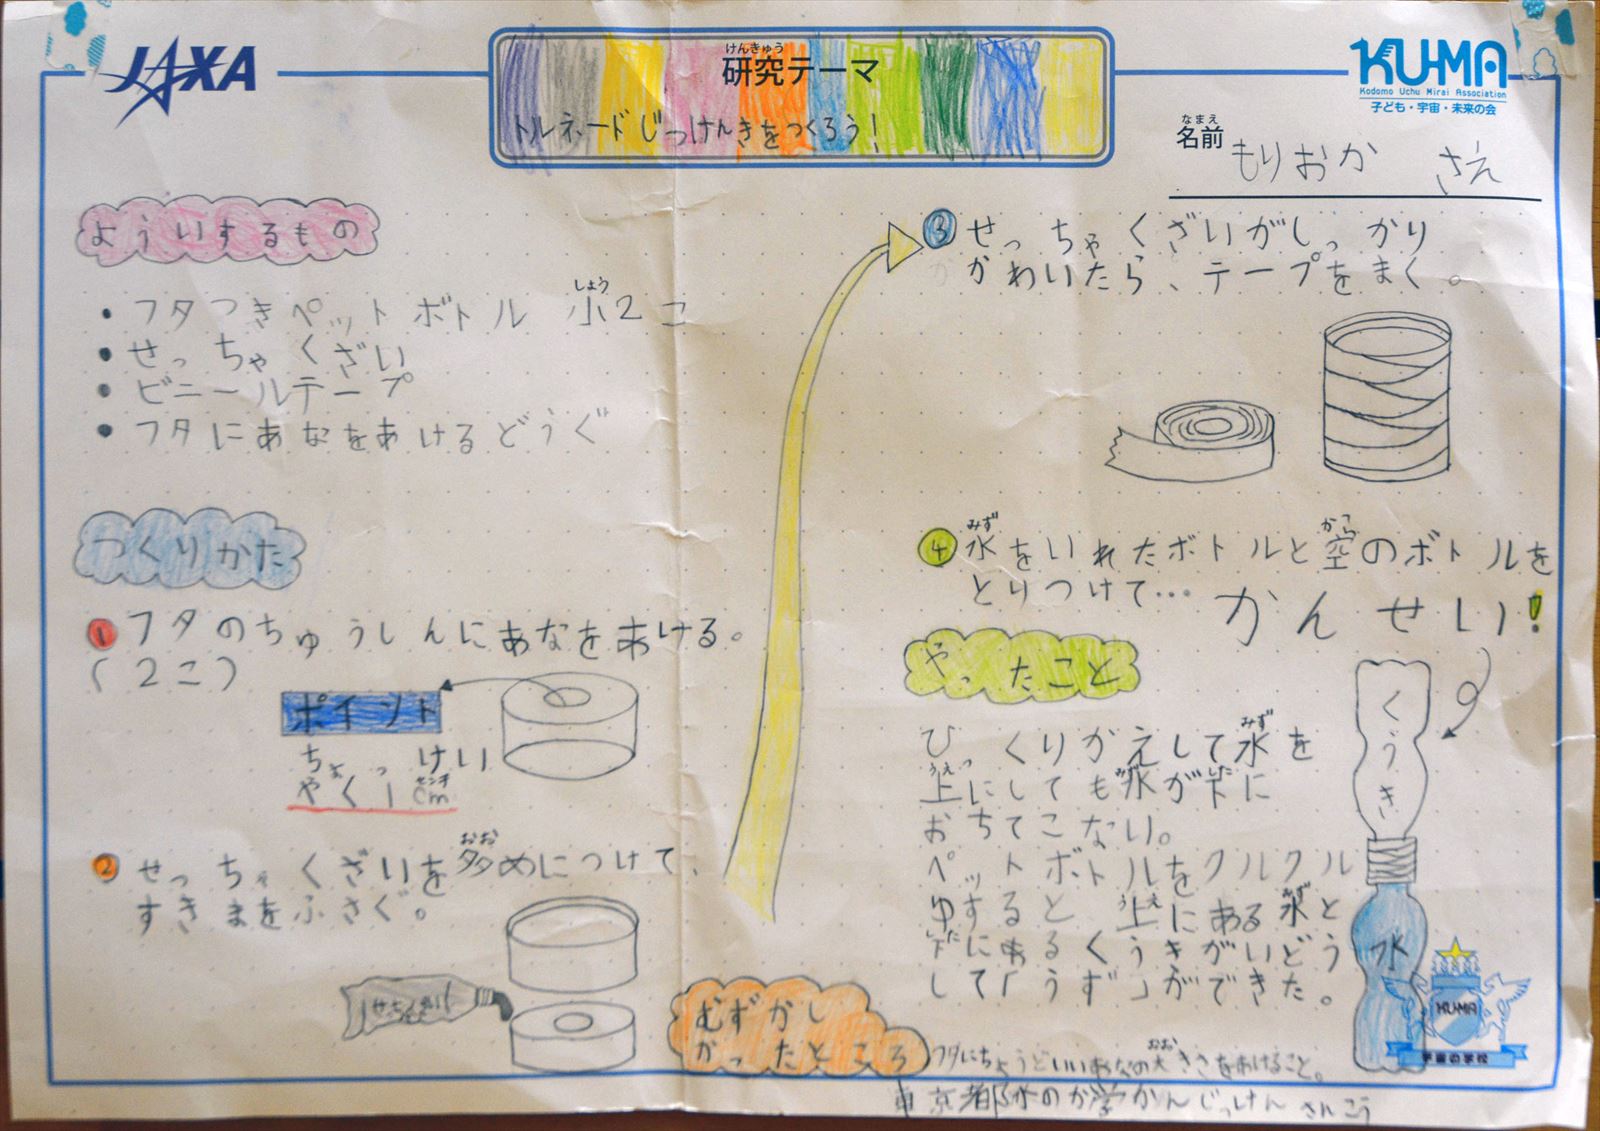 JAXA
けんきゅう
研究テーマ
トルネードじっけんきをつくろう!
KU-MA
Kodomo Uchu Mirai Association
子ども・宇宙・未来の会
なまえ
名前 もりおか さえ
よういするもの
・フタつきペットボトル 小2こ
しょう
・せっちゃくざい
・ビニールテープ
・フタにあなをあけるどうぐ
つくりかた
1 フタのちゅうしんにあなをあける。
(2こ)
ポイント
ちょっけい
やく1cm
センチ
2 せっちゃくざいを多めにつけて、
おお
すきまをふさぐ。
せっちゃくざい
3 せっちゃくざいがしっかり
かわいたら、テープをまく。
みず から
4 水をいれたボトルと空のボトルを
とりつけて…
かんせい!
やったこと
みず
ひっくりかえして水を
うえ みず した
上にしても水が下に
おちてこない。
ペットボトルをクルクル
うえ みず
ゆすると上にある水と
した
下にあるくうきがいどう
して「うず」ができた。
くうき
水
KU-MA
宇宙の学校
むずかし
かったところ
おお
フタにちょうどいいあなの大きさをあけること。
東京都水のか学かんじっけん さんこう